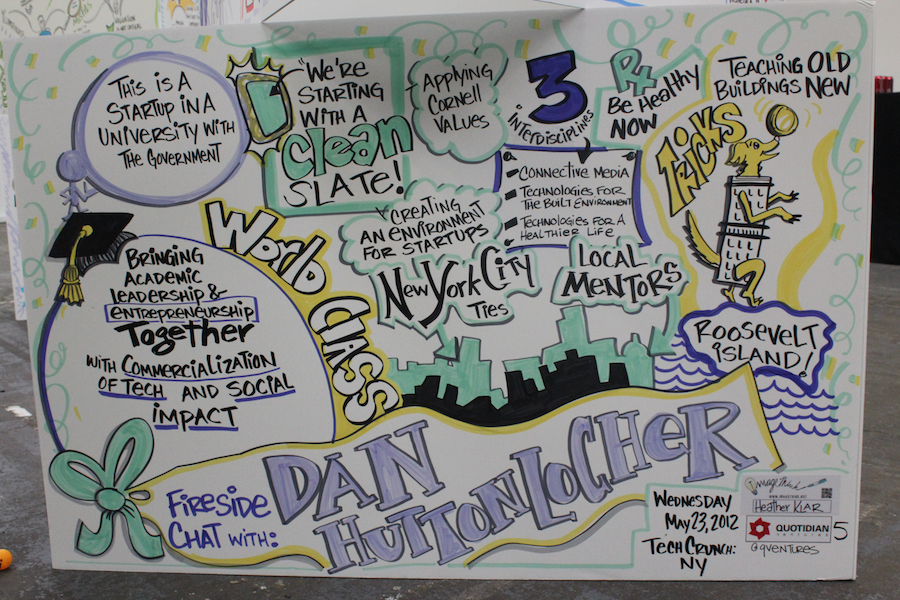 THIS IS A
STARTUP IN A
UNIVERSITY WITH
THE GOVERNMENT
"WE'RE
STARTING
WITH A
Clean
SLATE!
APPLYING
CORNELL
VALUES
3
INTERDISCIPLINES
- CONNECTIVE MEDIA
- TECHNOLOGIES FOR
THE BUILT ENVIRONMENT
- TECHNOLOGIES FOR A
HEALTHIER LIFE
Rx
BE HEALTHY
NOW
TEACHING OLD
BUILDINGS NEW
TRICKS
CREATING
AN ENVIRONMENT
FOR STARTUPS
NEW YORK CITY
TIES
LOCAL
MENTORS
ROOSEVELT
ISLAND!
WORLD CLASS
BRINGING
ACADEMIC
LEADERSHIP &
ENTREPRENEURSHIP
Together
WITH COMMERCIALIZATION
OF TECH AND SOCIAL
IMPACT
FIRESIDE
CHAT WITH:
DAN
HUTTONLOCHER
WEDNESDAY
MAY 23, 2012
TECHCRUNCH:
NY
ImageThink
WWW.IMAGETHINK.NET
HEATHER KLAR
QUOTIDIAN
VENTURES
@QVENTURES
5